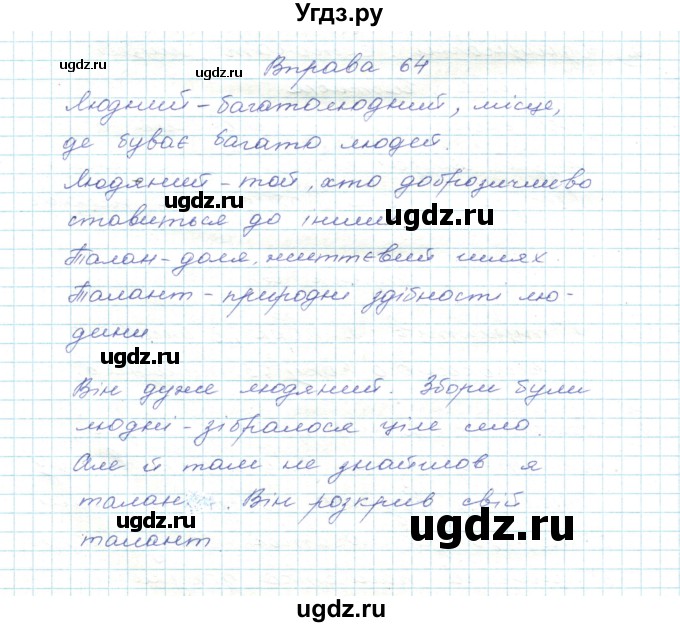 Угдз.ру
ugdz.ru ugdz.ru Вправа 64 ugdz.ru
Людний – багатолюдний, місце,
де буває багато людей.
Людяний – той, хто доброзичливо
ugdz.ru ставиться до інших ugdz.ru
Талан – доля, життєвий шлях.
Талант – природні здібності лю-
дини.
ugdz.ru ugdz.ru
Він дуже людяний. Збори були
людні – зібралося ціле село.
Але й там не знайшов я
талан. Він розкрив свій
ugdz.ru ugdz.ru
талант.
ugdz.ru